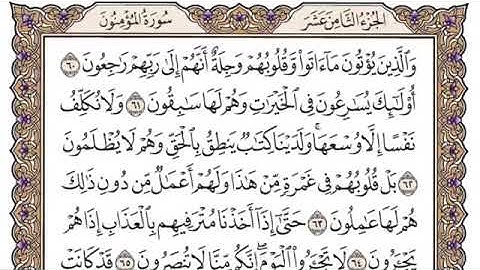 سُورَةُ المُؤْمِنُونَ الجُزْءُ الثَّامِنَ عَشَرَ
وَالَّذِينَ يُؤْتُونَ مَا ءَاتَوا۟ وَّقُلُوبُهُمْ وَجِلَةٌ أَنَّهُمْ إِلَىٰ رَبِّهِمْ رَٰجِعُونَ ٦٠
أُو۟لَٰٓئِكَ يُسَٰرِعُونَ فِى ٱلْخَيْرَٰتِ وَهُمْ لَهَا سَٰبِقُونَ ٦١ وَلَا نُكَلِّفُ
نَفْسًا إِلَّا وُسْعَهَا ۖ وَلَدَيْنَا كِتَٰبٌ يَنطِقُ بِٱلْحَقِّ ۚ وَهُمْ لَا يُظْلَمُونَ
٦٢ بَلْ قُلُوبُهُمْ فِى غَمْرَةٍ مِّنْ هَٰذَا وَلَهُمْ أَعْمَٰلٌ مِّن دُونِ ذَٰلِكَ
هُمْ لَهَا عَٰمِلُونَ ٦٣ حَتَّىٰٓ إِذَآ أَخَذْنَا مُتْرَفِيهِم بِٱلْعَذَابِ إِذَا هُمْ
يَجْـَٔرُونَ ٦٤ لَا تَجْـَٔرُوا۟ ٱلْيَوْمَ ۖ إِنَّكُم مِّنَّا لَا تُنصَرُونَ ٦٥ قَدْ كَانَتْ